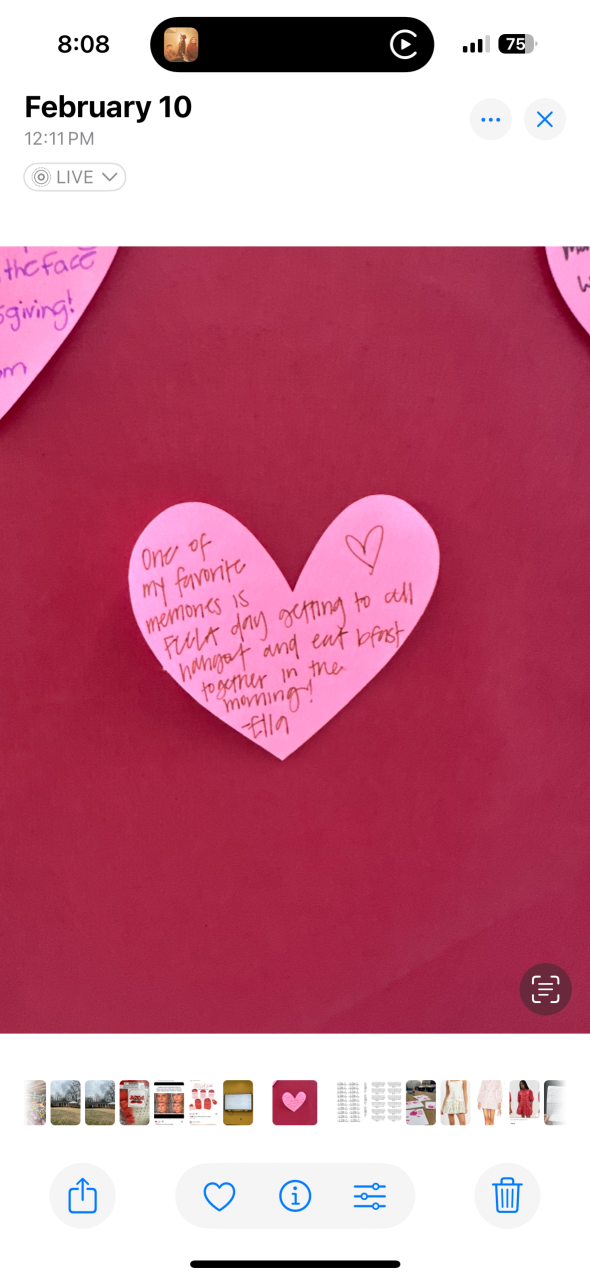 8:08
75
February 10
12:11 PM
LIVE
the face
sgiving!
om
W
One of
my favorite
memories is
day getting to all
hangout and eat bfast
together in the
morning!
-Ella